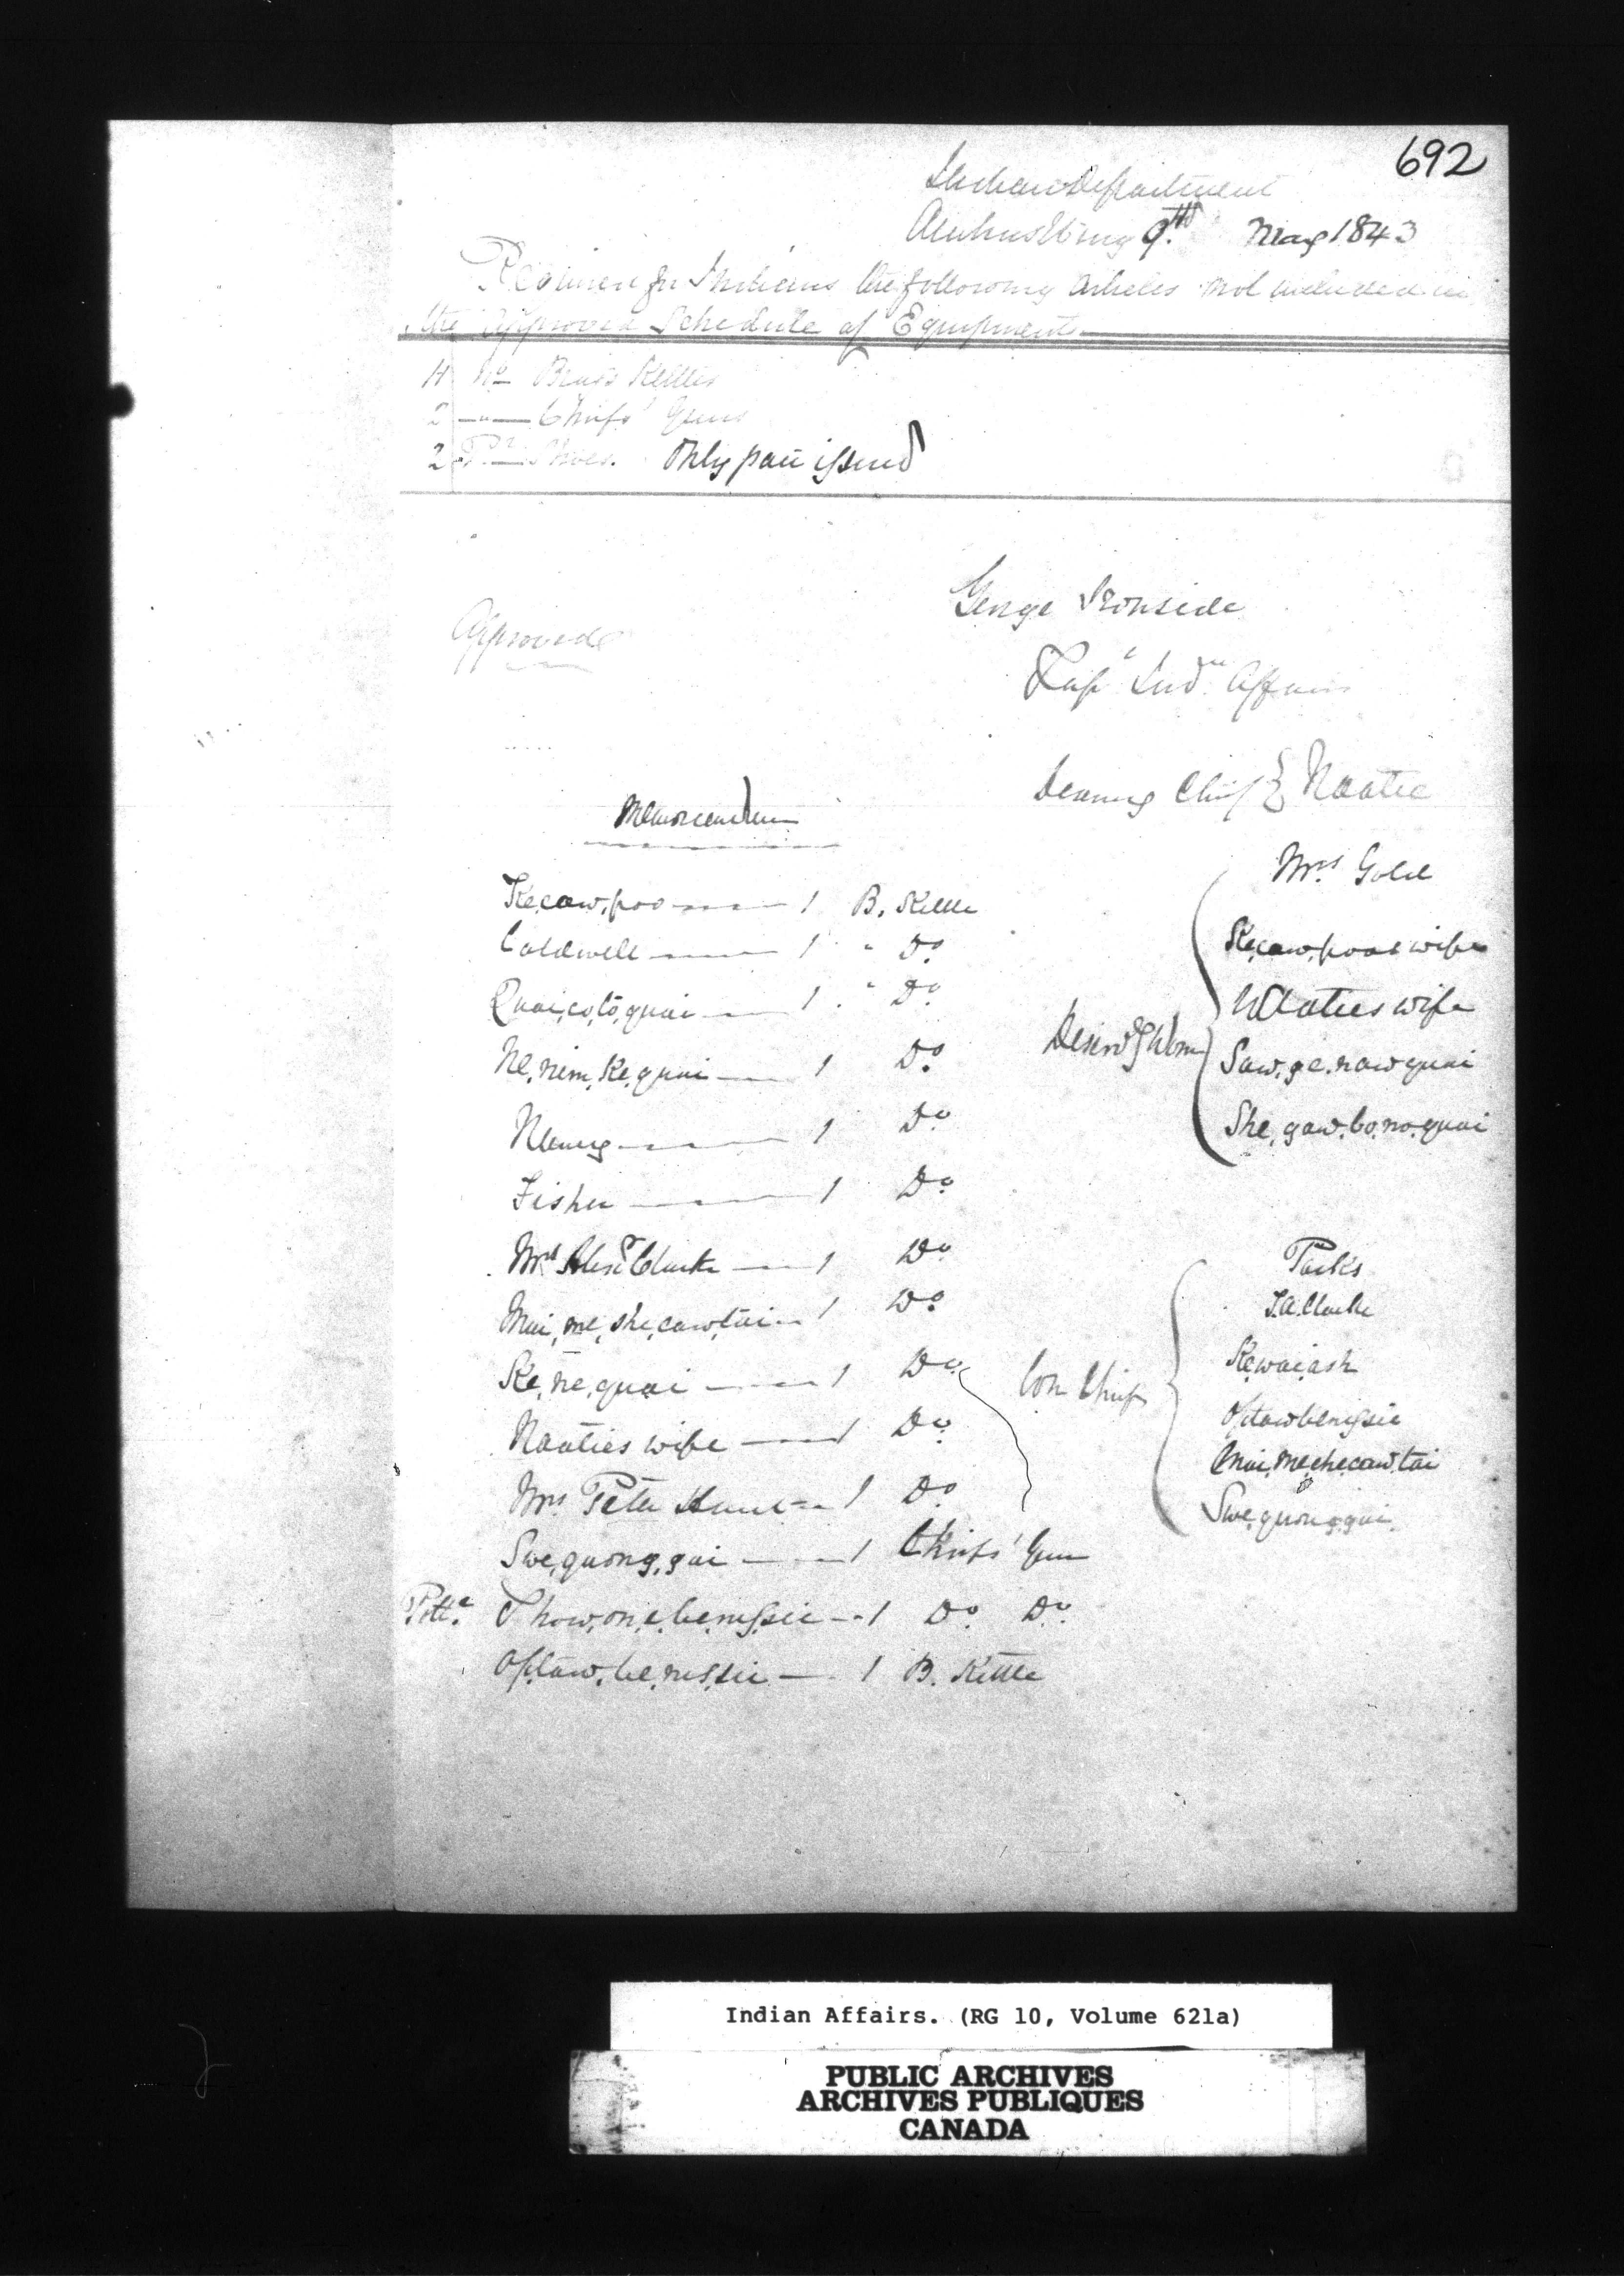 692
Indian Department
Amherstburg 9th May 1843
Required for Indians the following articles not included in
the approved Schedule of Equipment
No Brass Kettles
2 —"— Chiefs' Guns
2 Pr — Shoes. Only pair issued
George Ironside
Supt Indn Affairs
Approved
Chief } Naatee
Memorandum
Mrs Gold
Ke,caw,poo — 1 B. Kettle
Caldwell — 1 " Do
Quai,co,to,quai — 1 " Do
Ne,nim,ke,quai — 1 Do
1 Do
Fisher — 1 Do
Mrs Alexr Clarke — 1 Do
Mai,me,she,caw,tai — 1 Do
Ke,ne,quai — 1 Do
Naaties wife — 1 Do
Mrs Peter Hunt — 1 Do
Swe,quong,gai — 1 Chiefs' Gun
Pott.e T how,on,e,be,nessie — 1 Do Do
Op,taw,be,nessie — 1 B. Kettle
Ke,caw,poos wife
Naaties wife
Saw,ge,naw quai
She,gaw,bo,no,quai
Com Chiefs
Parks
J.A. Clarke
Ke,wai,ash
Optawbenessie
Mai,me,che,caw,tai
Swe,quong,gai
Indian Affairs. (RG 10, Volume 621a)
PUBLIC ARCHIVES
ARCHIVES PUBLIQUES
CANADA